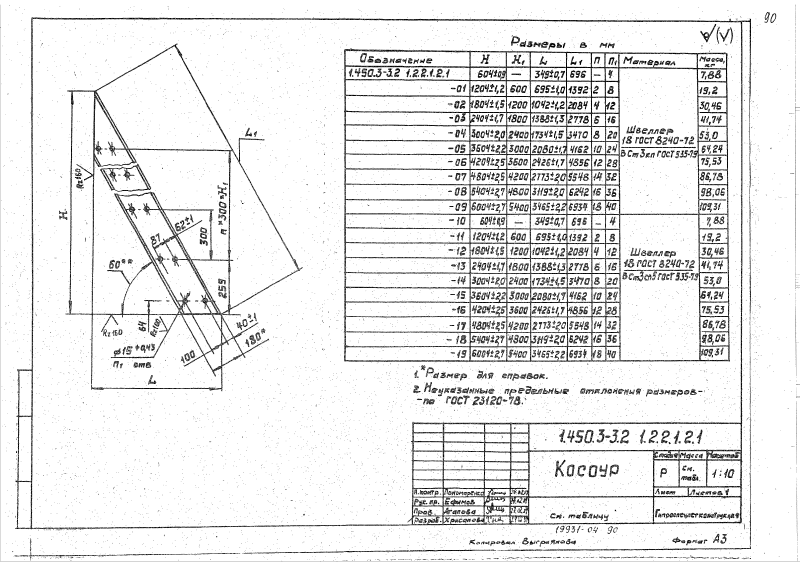 90
Размеры в мм
Обозначение H H₁ L L₁ П П₁ Материал Масса, кг
1.450.3-3.2 1.2.2.1.2.1 604±0,9 — 349±0,7 696 — 4 7,88
-01 1204±1,2 600 695±1,0 1392 2 8 19,2
-02 1804±1,5 1200 1042±1,2 2084 4 12 30,46
-03 2404±1,7 1800 1388±1,3 2778 6 16 41,74
-04 3004±2,0 2400 1734±1,5 3470 8 20 53,0
-05 3604±2,2 3000 2080±1,7 4162 10 24 64,24
-06 4204±2,5 3600 2426±1,7 4856 12 28 75,53
-07 4804±2,5 4200 2773±2,0 5548 14 32 86,78
-08 5404±2,7 4800 3119±2,0 6242 16 36 98,06
-09 6004±2,7 5400 3465±2,2 6934 18 40 109,31
Швеллер
18 ГОСТ 8240-72
В Ст3кп ГОСТ 535-79
-10 604±0,9 — 349±0,7 696 — 4 7,88
-11 1204±1,2 600 695±1,0 1392 2 8 19,2
-12 1804±1,5 1200 1042±1,2 2084 4 12 30,46
-13 2404±1,7 1800 1388±1,3 2778 6 16 41,74
-14 3004±2,0 2400 1734±1,5 3470 8 20 53,0
-15 3604±2,2 3000 2080±1,7 4162 10 24 64,24
-16 4204±2,5 3600 2426±1,7 4856 12 28 75,53
-17 4804±2,5 4200 2773±2,0 5548 14 32 86,78
-18 5404±2,7 4800 3119±2,0 6242 16 36 98,06
-19 6004±2,7 5400 3465±2,2 6934 18 40 109,31
Швеллер
18 ГОСТ 8240-72
В Ст3сп5 ГОСТ 535-79
L₁
Rz160
H
n*300=H₁
62±1
87
300
60**
259
64
Rz160
Rz160
40±1
180*
100
Ø15 +0,43
П₁ отв
L
1.*Размер для справок.
2. Неуказанные предельные отклонения размеров-
-по ГОСТ 23120-78.
1.450.3-3.2 1.2.2.1.2.1
Косоур
Стадия Масса Масштаб
Р См. табл. 1:10
Лист Листов 1
Н.контр. Пономаренко
Рук. пр. Ефимов
Пров. Агапова
Разраб. Хрисанова
См. таблицу
19931-04 90
Копировал Выгрянова
Формат А3